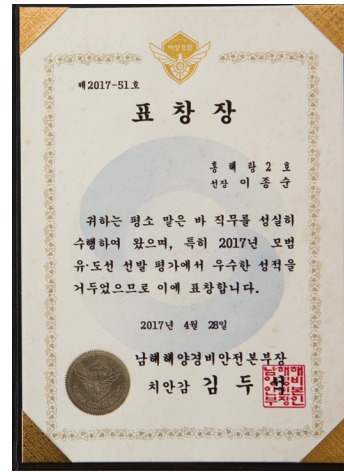 해양경찰
제2017-51호
표창장
홍해랑2호
선장 이종순
귀하는 평소 맡은 바 직무를 성실히
수행하여 왔으며, 특히 2017년 모범
유·도선 선발 평가에서 우수한 성적을
거두었으므로 이에 표창합니다.
2017년 4월 28일
남해해양경비안전본부장
치안감 김두석